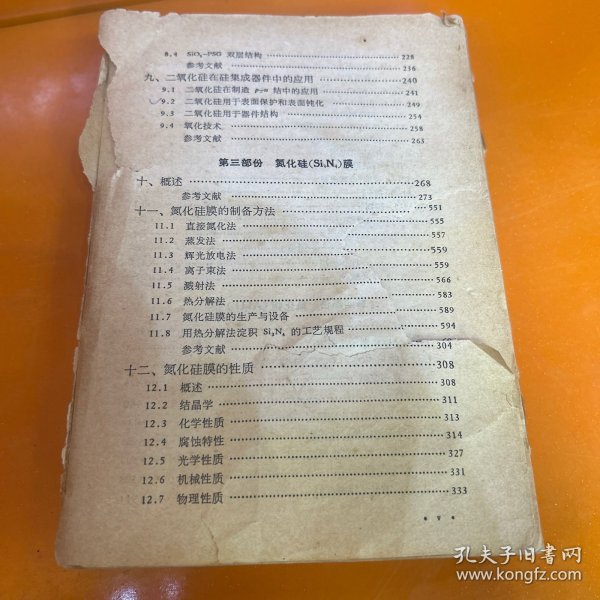 8.4 SiO₂-PSG 双层结构 228
参考文献 236
九、二氧化硅在硅集成器件中的应用 240
9.1 二氧化硅在制造 p-n 结中的应用 241
9.2 二氧化硅用于表面保护和表面钝化 249
9.3 二氧化硅用于器件结构 254
9.4 氧化技术 258
参考文献 263
第三部份 氮化硅(Si₃N₄)膜
十、概述 268
参考文献 273
十一、氮化硅膜的制备方法 551
11.1 直接氮化法 555
11.2 蒸发法 557
11.3 辉光放电法 559
11.4 离子束法 559
11.5 溅射法 566
11.6 热分解法 583
11.7 氮化硅膜的生产与设备 589
11.8 用热分解法淀积 Si₃N₄ 的工艺规程 594
参考文献 304
十二、氮化硅膜的性质 308
12.1 概述 308
12.2 结晶学 311
12.3 化学性质 313
12.4 腐蚀特性 314
12.5 光学性质 327
12.6 机械性质 331
12.7 物理性质 333
• V •
孔夫子旧书网
www.kongfz.com